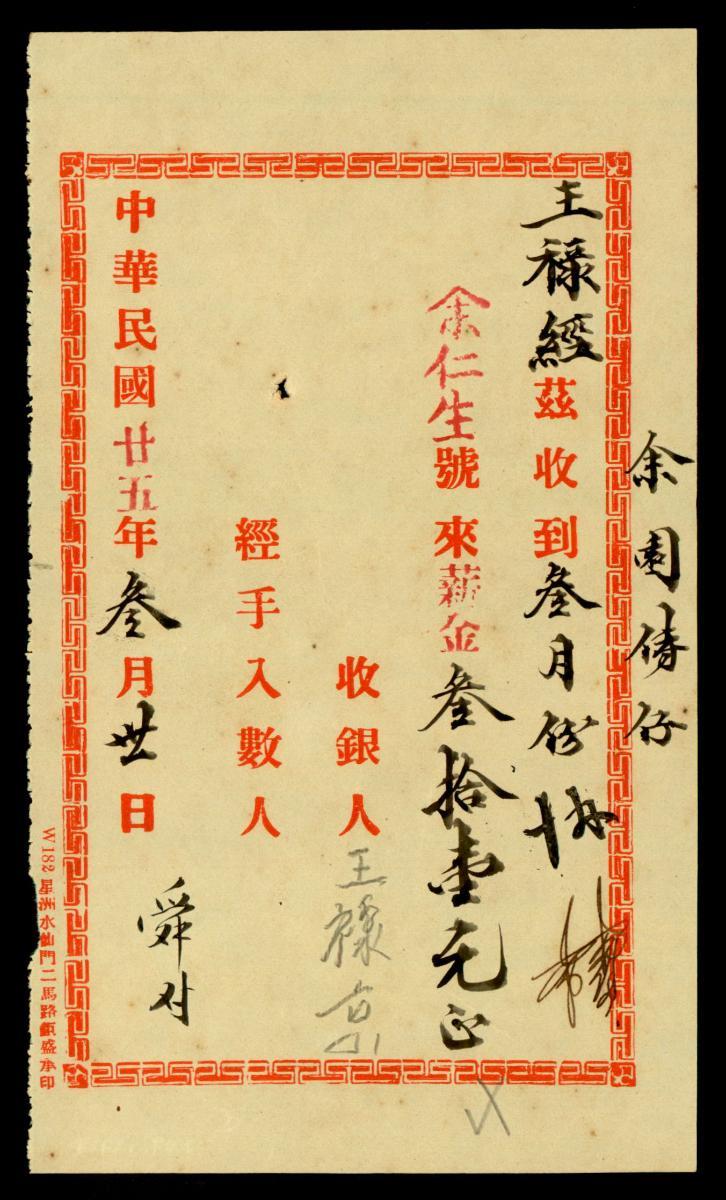 余園倩仔
王祿經茲收到叁月份
余仁生號來薪金叁拾壹元正
收銀人王祿京
經手入數人
中華民國廿五年叁月卅日
舜对
W182 星洲水仙門二馬路領盛承印